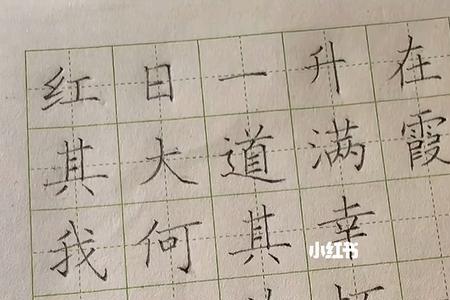 红日一升在
其大道满霞
我何其幸
小红书